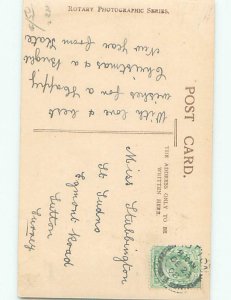 ROTARY PHOTOGRAPHIC SERIES.
POST CARD.
THE ADDRESS ONLY TO BE
WRITTEN HERE.
With love & best
wishes for a Happy
Christmas & a Bright
New Year from Kate
Miss Stubbington
St
Egmont Road
Sutton
Surrey